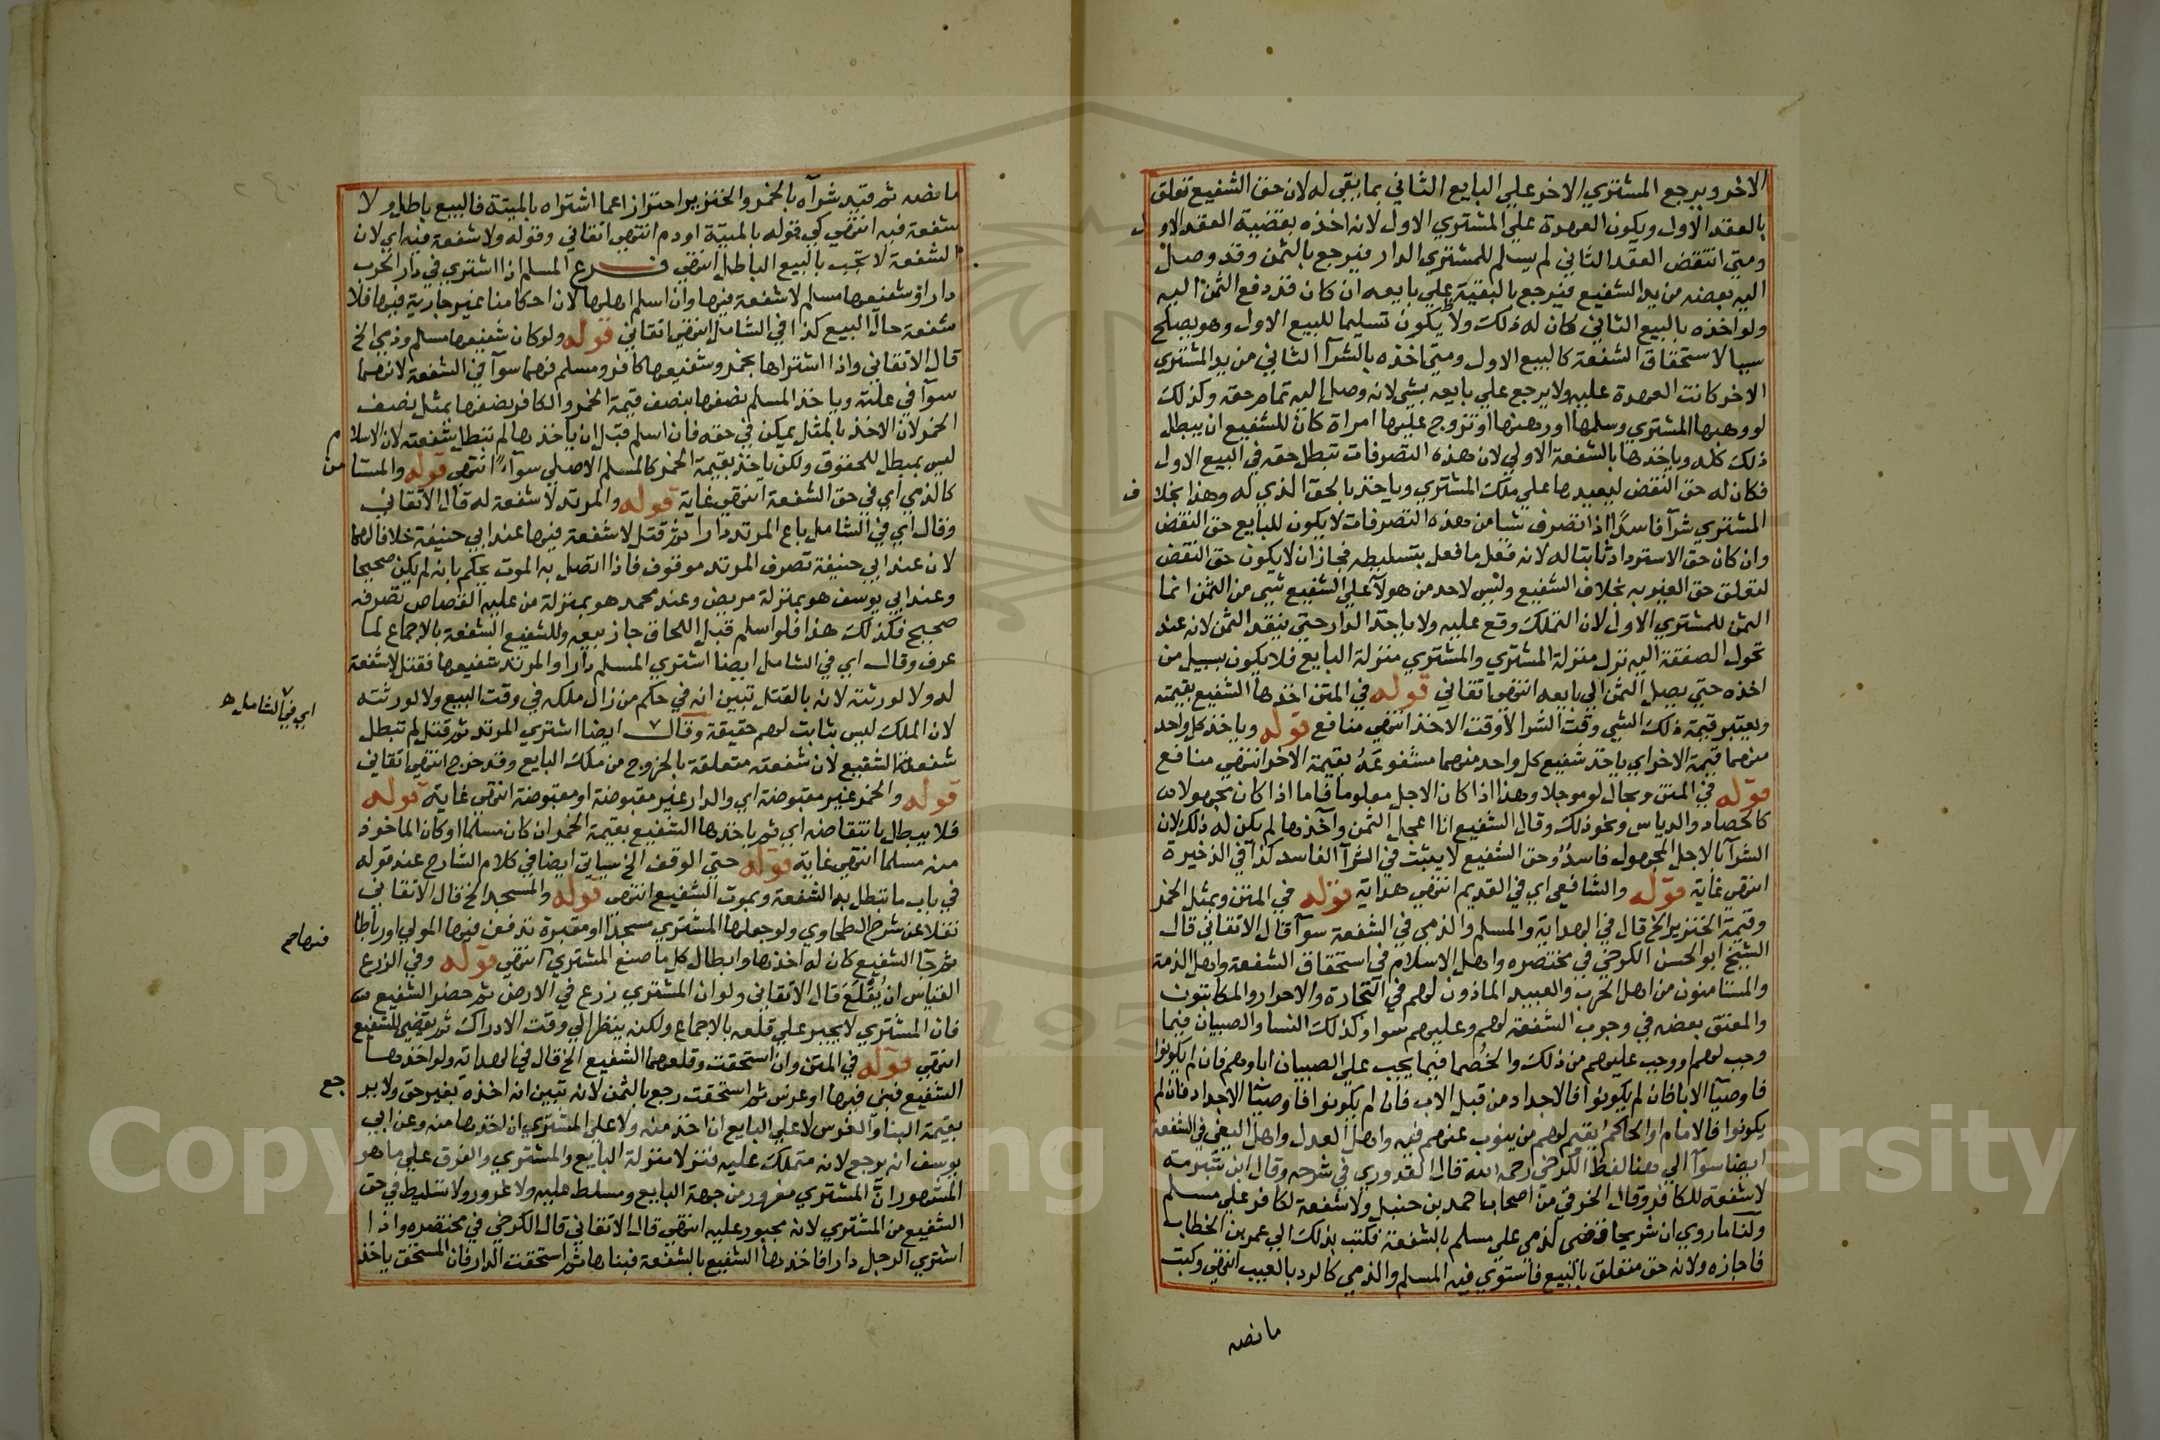 الاخر ويرجع المشتري الاخر علي البايع الثاني بما بقي له لان حق الشفيع تعلق
بالعقد الاول ويكون العهدة علي المشتري الاول لانه اخذه بقضية العقد الاو ل
ومتي انتقض العقد الثاني لم يسلم للمشتري الدار فيرجع بالثمن وقد وصل
اليه بعضه من يد الشفيع فيرجع بالبقية علي بايعه ان كان قد دفع الثمن اليه
ولو اخذه بالبيع الثاني كان له ذلك ولا يكون تسليما للبيع الاول وهو يصلح
سببا لاستحقاق الشفعة كالبيع الاول ومتي اخذه بالشرآ الثاني من يد المشتري
الاخر كانت العهدة عليه ولا يرجع علي بايعه بشي لانه وصل اليه تمام حقه وكذلك
لو وهبها المشتري وسلمها او رهنها او تزوج عليها امراة كان للشفيع ان يبطل
ذلك كله وياخذها بالشفعة الاولي لان هذه التصرفات تبطل حقه في البيع الاول
فكان له حق النقض ليعيدها علي ملك المشتري وياخذ بالحق الذي له وهذا بخلا ف
المشتري شرآ فاسدا اذا تصرف شيا من هذه التصرفات لا يكون للبايع حق النقض
وان كان حق الاسترداد ثابتا له لانه فعل ما فعل بتسليطه فجاز ان لا يكون حق النقض
لتعلق حق الغير به بخلاف الشفيع وليس لاحد من هولآ علي الشفيع شي من الثمن انما
الثمن للمشتري الاول لان التملك وقع عليه ولا ياخذ الدار حتي ينقد الثمن لانه عند
تحول الصفقة اليه نزل منزلة المشتري والمشتري منزلة البايع فلا يكون بسبيل من
اخذه حتي يصل الثمن الي بايعه انتهي اتقاني قوله في المتن اخذها الشفيع بقيمته
ويعتبر قيمة ذلك الشي وقت الشرا لا وقت الاخذ انتهي منافع قوله وياخذ كل واحد
منهما قيمة الاخر اي ياخذ شفيع كل واحد منهما مشفوعه بقيمة الاخر انتهي منافع
قوله في المتن وبحال لو موجلا وهذا اذا كان الاجل معلوما فاما اذا كان مجهولا
كالحصاد والدياس ونحو ذلك وقال الشفيع انا اعجل الثمن وآخذها لم يكن له ذلك لان
الشرآ بالاجل المجهول فاسد وحق الشفيع لا يثبت في الشرآ الفاسد كذا في الذخيرة
انتهي غاية قوله والشافعي اي في القديم انتهي هداية قوله في المتن وبمثل الخمر
وقيمة الخنزير الخ قال في الهداية والمسلم والذمي في الشفعة سوآ قال الاتقاني قال
الشيخ ابو الحسن الكرخي في مختصره واهل الاسلام في استحقاق الشفعة واهل الذمة
والمستامنون من اهل الحرب والعبيد الماذون لهم في التجارة والاحرار والمكاتبون
والمعتق بعضه في وجوب الشفعة لهم وعليهم سوا وكذلك النسا والصبيان فيما
وجب لهم او وجب عليهم من ذلك والخصما فيما يجب علي الصبيان اباوهم فان لم يكونوا
فاوصيآ الابا فان لم يكونوا فالاجداد من قبل الاب فان لم يكونوا فاوصيآ الاجداد فان لم
يكونوا فالامام او الحاكم يقيم لهم من ينوب عنهم فيه واهل العدل واهل البغي في الشفعة
ايضا سوآ الي هنا لفظ الكرخي رحمه الله قال القدوري في شرحه وقال ابن شبرمة
لا شفعة للكافر وقال الخرقي من اصحاب احمد بن حنبل ولا شفعة لكافر علي مسلم
ولنا ما روي ان شريحا قضي لذمي علي مسلم بالشفعة فكتب بذلك الي عمر بن الخطاب
فاجازه ولانه حق متعلق بالبيع فاستوي فيه المسلم والذمي كالرد بالعيب انتهي وكتب
ما نصه
ما نصه ثم قيد شرآه بالخمر والخنزير احترازا عما اشتراه بالميتة فالبيع باطل ولا
شفعة فيه انتهي كي قوله بالميتة او دم انتهي اتقاني وقوله ولا شفعة فيه اي لان
الشفعة لا تجب بالبيع الباطل انتهي فرع المسلم اذا اشتري في دار الحرب
دارا وشفيعها مسلم لا شفعة فيها وان اسلم اهلها لان احكامنا غير جارية فيها فلا
شفعة حال البيع كذا في الشامل انتهي اتقاني قوله ولو كان شفيعها مسلم وذمي الخ
قال الاتقاني واذا اشتراها بخمر وشفيعها كافر ومسلم فهما سوآ في الشفعة لانهما
سوآ في علته وياخذ المسلم نصفها بنصف قيمة الخمر والكافر نصفها بمثل نصف
الخمر لان الاخذ بالمثل يمكن في حقه فان اسلم قبل ان ياخذها لم تبطل شفعته لان الاسلا م
ليس بمبطل للحقوق ولكن ياخذ بقيمة الخمر كالمسلم الاصلي سوآ انتهي قوله والمستا من
كالذمي اي في حق الشفعة انتهي غاية قوله والمرتد لا شفعة له قال الاتقاني
وقال اي في الشامل باع المرتد دارا ثم قتل لا شفعة فيها عند ابي حنيفة خلافا لهما
لان عند ابي حنيفة تصرف المرتد موقوف فاذا اتصل به الموت يحكم بانه لم يكن صحيحا
وعند ابي يوسف هو بمنزلة مريض وعند محمد هو بمنزلة من عليه القصاص تصرفه
صحيح فكذلك هذا فلو اسلم قبل اللحاق جاز بيعه وللشفيع الشفعة بالاجماع لما
عرف وقال اي في الشامل ايضا اشتري المسلم دارا والمرتد شفيعها فقتل لا شفعة
له ولا لورثته لانه بالقتل تبين انه في حكم من زال ملكه في وقت البيع ولا لورثته
لان الملك ليس بثابت لهم حقيقة وقال ايضا اشتري المرتد ثم قتل لم تبطل
اي في الشامل ه
شفعة الشفيع لان شفعته متعلقة بالخروج من ملك البايع وقد خرج انتهي اتقاني
قوله والخمر غير مقبوضة اي والدار غير مقبوضة او مقبوضة انتهي غاية قوله
فلا يبطل بانتقاضه اي ثم ياخذها الشفيع بقيمة الخمر ان كان مسلما او كان الماخوذ
منه مسلما انتهي غاية قوله حتي الوقف الخ سياتي ايضا في كلام الشارح عند قوله
في باب ما تبطل به الشفعة وبموت الشفيع انتهي قوله والمسجد الخ قال الاتقاني
نقلا عن شرح الطحاوي ولو جعلها المشتري مسجدا او مقبرة تدفن فيها الموتي او رباطا
ثم جآ الشفيع كان له اخذها وابطال كل ما صنع المشتري انتهي قوله وفي الزرع
القياس ان يقلع قال الاتقاني ولو ان المشتري زرع في الارض ثم حضر الشفيع
فان المشتري لا يجبر علي قلعه بالاجماع ولكنه ينظر الي وقت الادراك ثم يقضي للشفيع
انتهي قوله في المتن وان استحقت وقلعهما الشفيع الخ قال في الهداية ولو اخذها
الشفيع فبني فيها او غرس ثم استحقت رجع بالثمن لانه تبين انه اخذه بغير حق ولا ير جع
بقيمة البنا والغرس لا علي البايع ان اخذ منه ولا علي المشتري ان اخذها منه وعن ابي
يوسف انه يرجع لانه متملك عليه فنزلا منزلة البايع والمشتري والفرق علي ما هو
المشهور ان المشتري مغرور من جهة البايع ومسلط عليه ولا غرور ولا تسليط في حق
الشفيع من المشتري لانه مجبور عليه انتهي قال الاتقاني قال الكرخي في مختصره واذا
اشتري الرجل دارا فاخذها الشفيع بالشفعة فبناها ثم استحقت الدار فان المستحق ياخذ
Copy King University
195